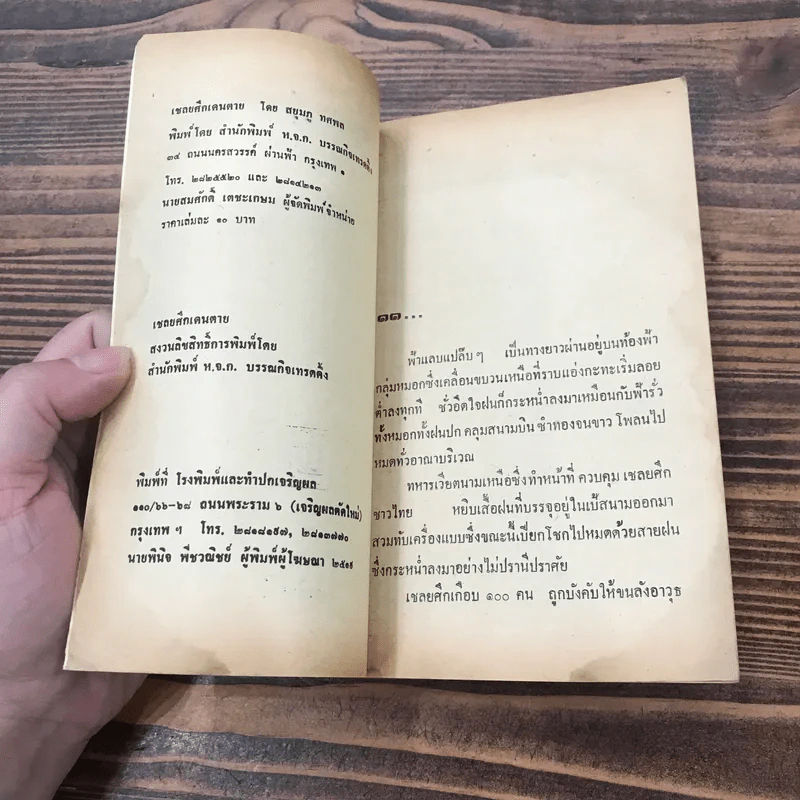 เชลยศึกเดนตาย โดย สยุมภู ทศพล
พิมพ์โดย สำนักพิมพ์ ห.จ.ก. บรรณกิจเทรดดิ้ง
๓๔ ถนนนครสวรรค์ ผ่านฟ้า กรุงเทพ ๑
โทร. ๒๘๒๕๕๒๐ และ ๒๘๑๔๒๑๓
นายสมศักดิ์ เตชะเกษม ผู้จัดพิมพ์จำหน่าย
ราคาเล่มละ ๑๐ บาท
เชลยศึกเดนตาย
สงวนลิขสิทธิ์การพิมพ์โดย
สำนักพิมพ์ ห.จ.ก. บรรณกิจเทรดดิ้ง
พิมพ์ที่ โรงพิมพ์และทำปกเจริญผล
๑๑๐/๖๖-๖๘ ถนนพระราม ๖ (เจริญผลตัดใหม่)
กรุงเทพ ฯ โทร. ๒๘๑๘๑๙๗, ๒๘๑๓๗๗๐
นายพินิจ พืชวณิชย์ ผู้พิมพ์ผู้โฆษณา ๒๕๑๙
๑๑...
ฟ้าแลบแปล๊บ ๆ เป็นทางยาวผ่านอยู่บนท้องฟ้า
กลุ่มหมอกซึ่งเคลื่อนขบวนเหนือที่ราบแอ่งกะทะเริ่มลอย
ต่ำลงทุกที ชั่วอึดใจฝนก็กระหน่ำลงมาเหมือนกับฟ้ารั่ว
ทั้งหมอกทั้งฝนปก คลุมสนามบิน ซำทองจนขาว โพลนไป
หมดทั่วอาณาบริเวณ
ทหารเวียตนามเหนือซึ่งทำหน้าที่ ควบคุม เชลยศึก
ชาวไทย หยิบเสื้อฝนที่บรรจุอยู่ในเป้สนามออกมา
สวมทับเครื่องแบบซึ่งขณะนี้เปียกโชกไปหมดด้วยสายฝน
ซึ่งกระหน่ำลงมาอย่างไม่ปรานีปราศัย
เชลยศึกเกือบ ๑๐๐ คน ถูกบังคับให้ขนลังอาวุธ